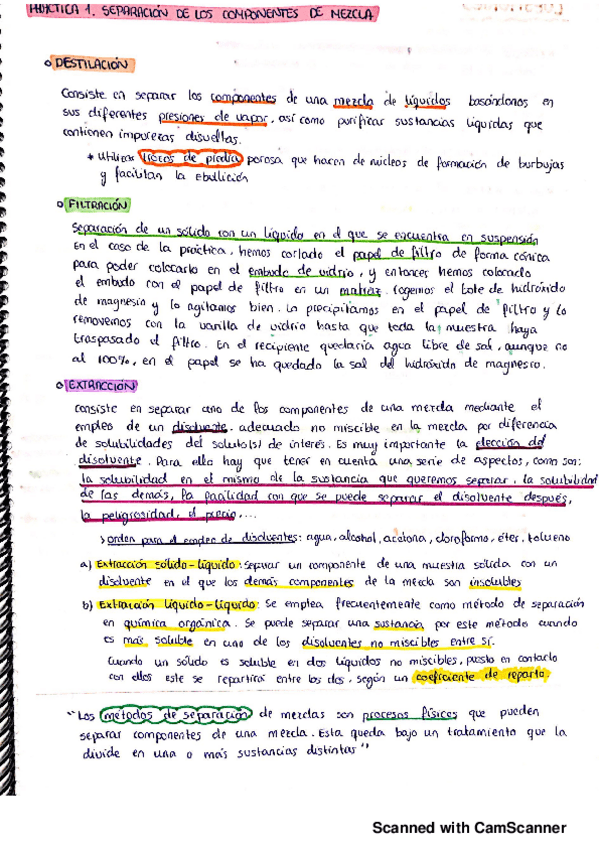 PRÁCTICA 1. SEPARACIÓN DE LOS COMPONENTES DE MEZCLA
DESTILACIÓN
Consiste en separar los componentes de una mezcla de líquidos basándonos en
sus diferentes presiones de vapor, así como purificar sustancias líquidas que
contienen impurezas disueltas.
* Utilizar trozos de piedra porosa que hacen de núcleos de formación de burbujas
y facilitan la ebullición
FILTRACIÓN
Separación de un sólido con un líquido en el que se encuentra en suspensión
En el caso de la práctica, hemos cortado el papel de filtro de forma cónica
para poder colocarlo en el embudo de vidrio, y entonces hemos colocado
el embudo con el papel de filtro en un matraz. Cogemos el bote de hidróxido
de magnesio y lo agitamos bien. Lo precipitamos en el papel de filtro y lo
removemos con la varilla de vidrio hasta que toda la muestra haya
traspasado el filtro. En el recipiente quedaría agua libre de sal, aunque no
al 100%, en el papel se ha quedado la sal del hidróxido de magnesio.
EXTRACCIÓN
Consiste en separar uno de los componentes de una mezcla mediante el
empleo de un disolvente adecuado no miscible en la mezcla por diferencia
de solubilidades del soluto(s) de interés. Es muy importante la elección del
disolvente. Para ello hay que tener en cuenta una serie de aspectos, como son:
la solubilidad en el mismo de la sustancia que queremos separar, la solubilidad
de las demás, la facilidad con que se puede separar el disolvente después,
la peligrosidad, el precio,...
> orden para el empleo de disolventes: agua, alcohol, acetona, cloroformo, éter, tolueno
a) Extracción sólido-líquido: separar un componente de una muestra sólida con un
disolvente en el que los demás componentes de la mezcla son insolubles
b) Extracción líquido-líquido: Se emplea frecuentemente como método de separación
en química orgánica. Se puede separar una sustancia por este método cuando
es más soluble en uno de los disolventes no miscibles entre sí.
Cuando un sólido es soluble en dos líquidos no miscibles, puesto en contacto
con ellos este se repartirá entre los dos, según un coeficiente de reparto.
"Los métodos de separación de mezclas son procesos físicos que pueden
separar componentes de una mezcla. Esta queda bajo un tratamiento que la
divide en una o más sustancias distintas"
Scanned with CamScanner